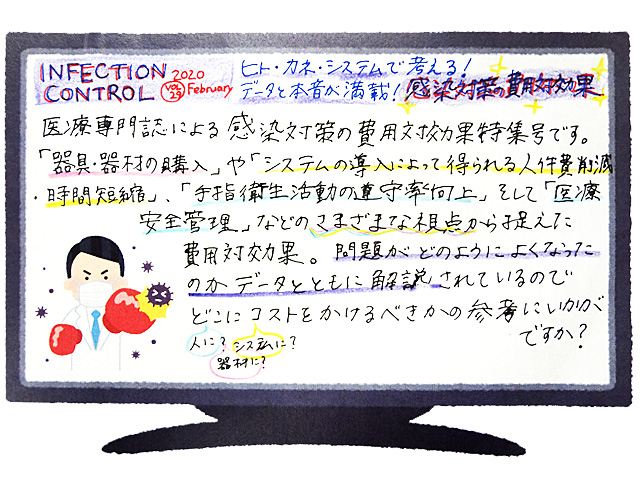 INFECTION CONTROL 2020 VOL.29 February
ヒト・カネ・システムで考える!
データと本音が満載!感染対策の費用対効果
医療専門誌による感染対策の費用対効果特集号です。
「器具・器材の購入」や「システムの導入によって得られる人件費削減
・時間短縮」、「手指衛生活動の遵守率向上」そして「医療
安全管理」などのさまざまな視点から捉えた
費用対効果。問題がどのようによくなった
のかデータとともに解説されているので
どこにコストをかけるべきかの参考にいかが
ですか?
人に?システムに?
器材に?